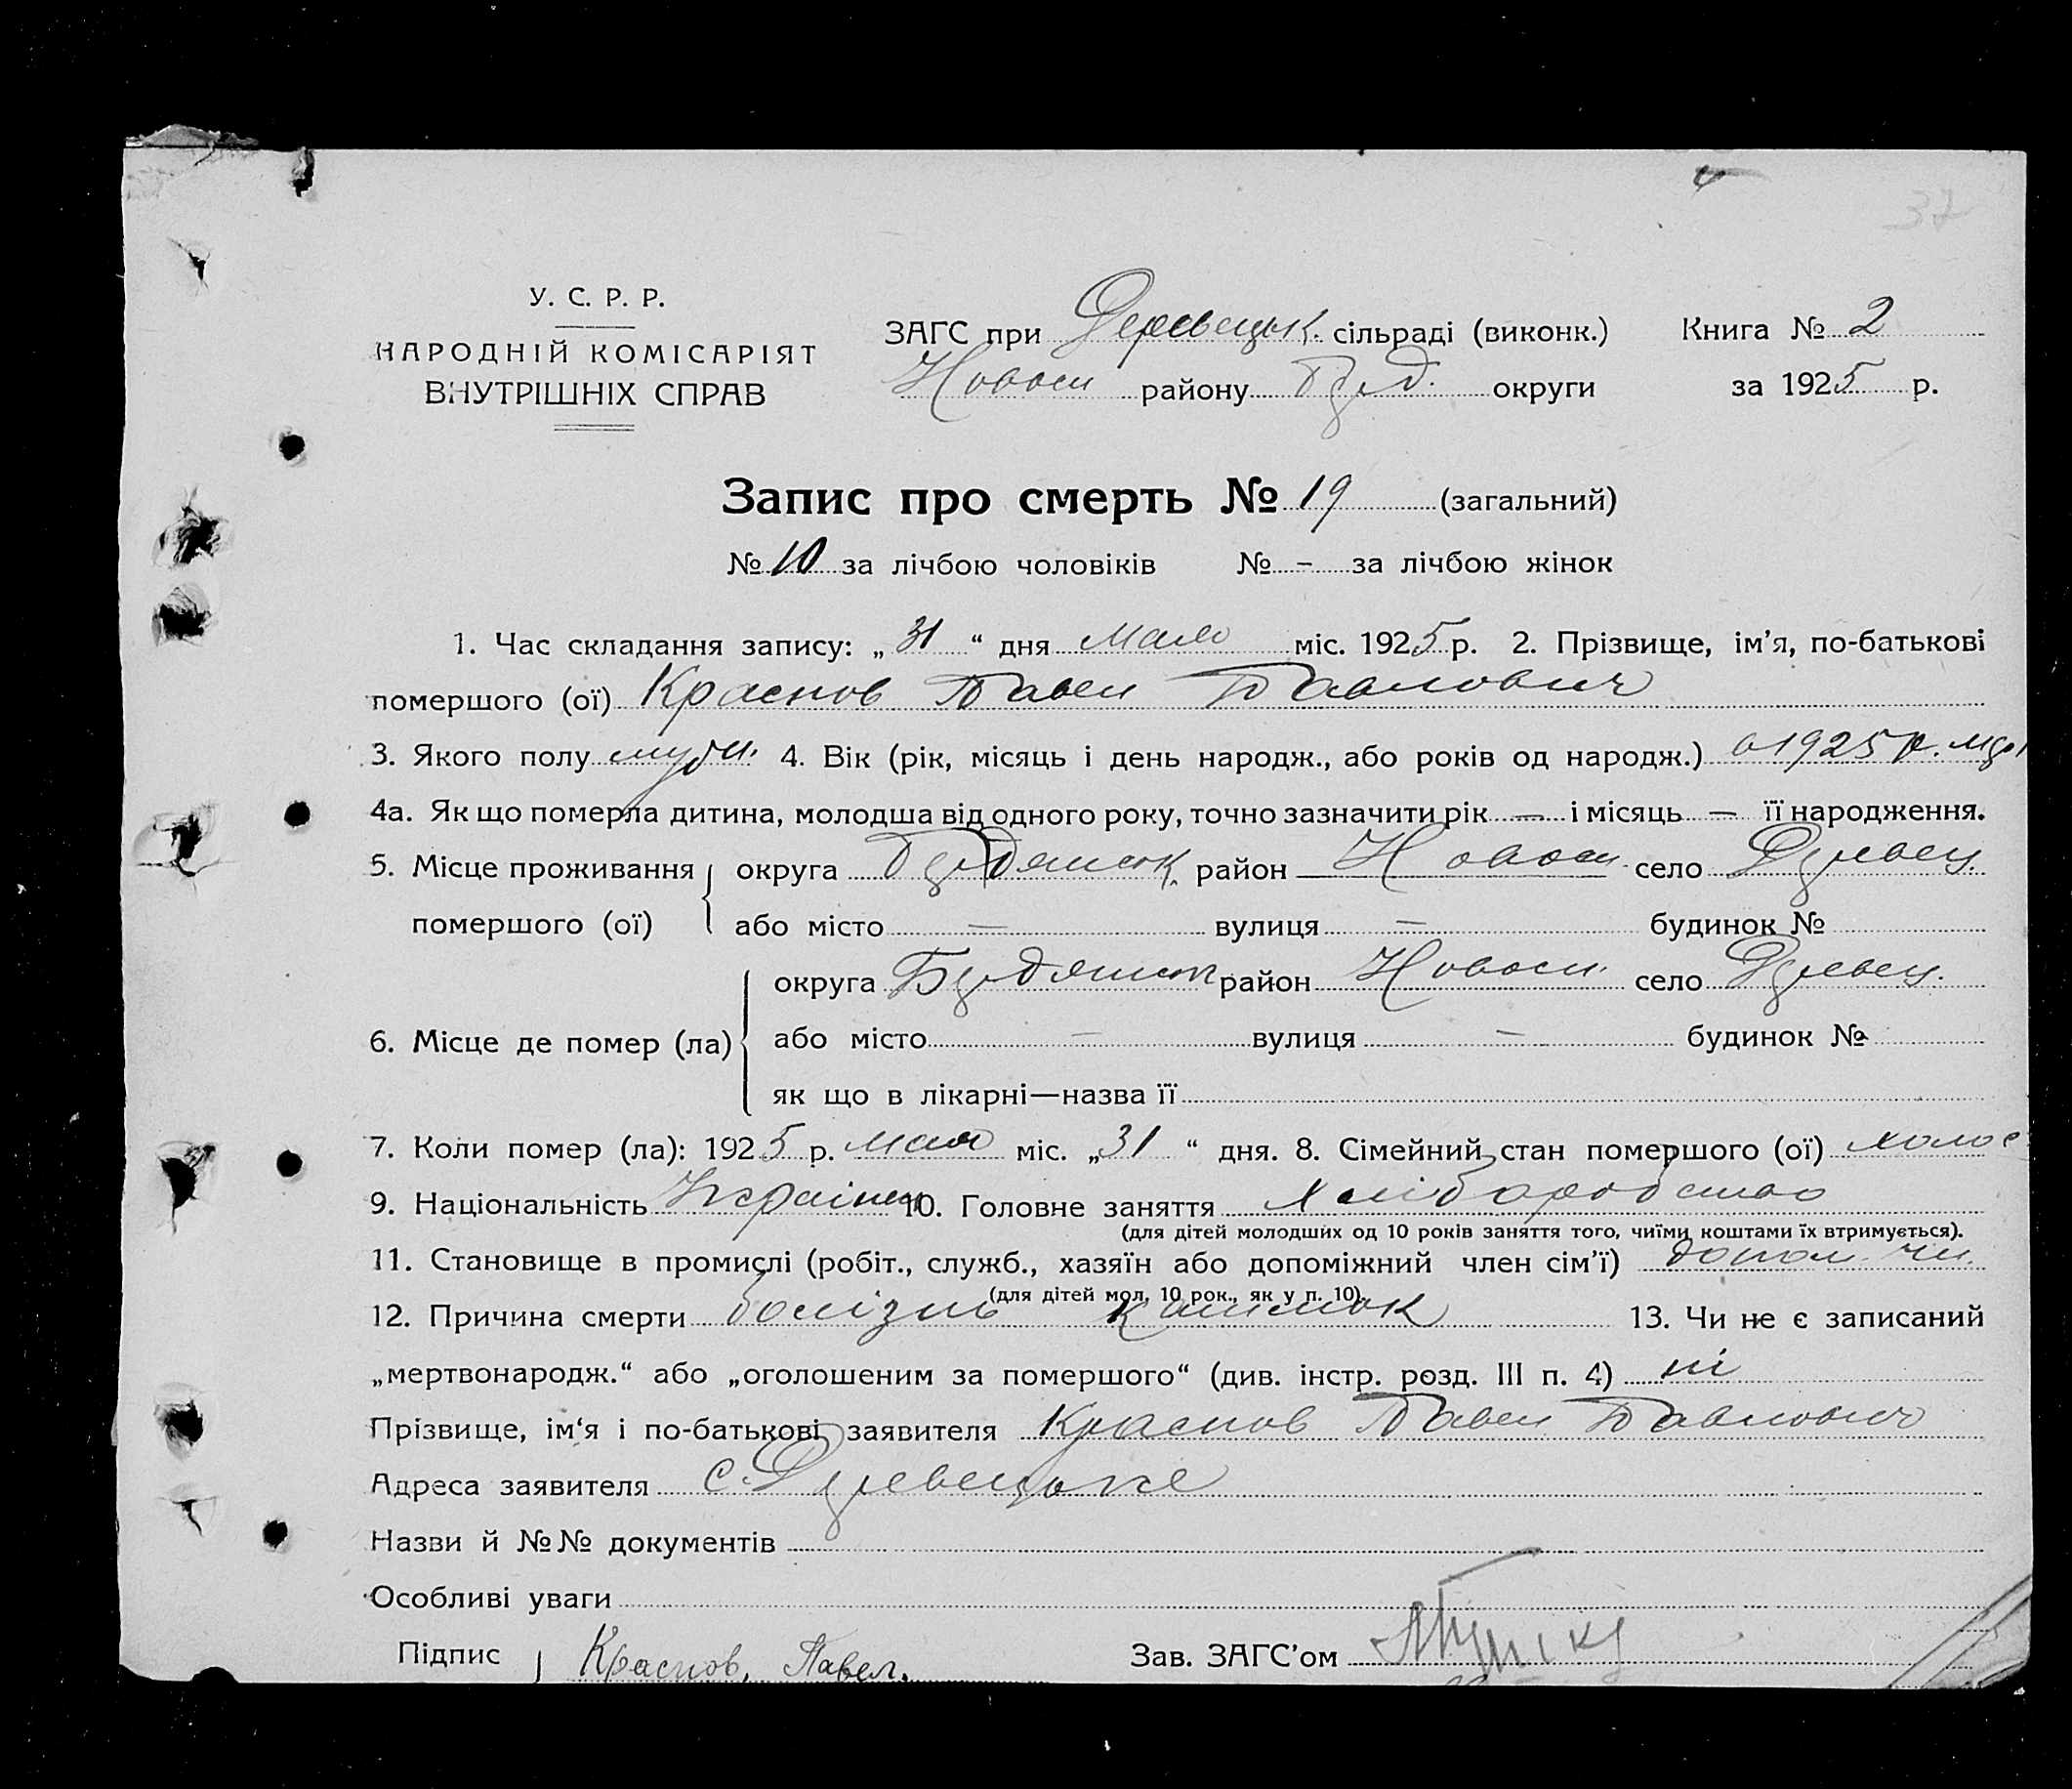 37
У. С. Р. Р.
НАРОДНІЙ КОМІСАРІЯТ
ВНУТРІШНІХ СПРАВ
ЗАГС при Деревецьк. сільраді (виконк.) Книга № 2
Новосп району Берд. округи за 1925 р.
Запис про смерть № 19 (загальний)
№ 10 за лічбою чоловіків № - за лічбою жінок
1. Час складання запису: „31“ дня Мая міс. 1925 р. 2. Прізвище, ім’я, по-батькові
помершого (ої) Краснов Павел Павлович
3. Якого полу муж. 4. Вік (рік, місяць і день народж., або років од народж.) 1925 р.
4а. Як що померла дитина, молодша від одного року, точно зазначити рік — і місяць — її народження.
5. Місце проживання округа Бердянськ. район Новосп. село Деревец.
помершого (ої) або місто — вулиця — будинок №
округа Бердянськ район Новосп. село Деревец.
6. Місце де помер (ла) або місто — вулиця — будинок №
як що в лікарні—назва її
7. Коли помер (ла): 1925 р. Мая міс. „31“ дня. 8. Сімейний стан помершого (ої) холос
9. Національність Україн 10. Головне заняття Хліборобство
(для дітей молодших од 10 років заняття того, чиїми коштами їх втримується).
11. Становище в промислі (робіт., служб., хазяїн або допоміжний член сім’ї) допом чл.
(для дітей мол. 10 рок., як у п. 10).
12. Причина смерти болізнь 13. Чи не є записаний
„мертвонародж.“ або „оголошеним за помершого“ (див. інстр. розд. III п. 4) ні
Прізвище, ім‘я і по-батькові заявителя Краснов Павел Павлович
Адреса заявителя с. Деревецьке
Назви й №№ документів
Особливі уваги
Підпис Краснов, Павел. Зав. ЗАГС’ом